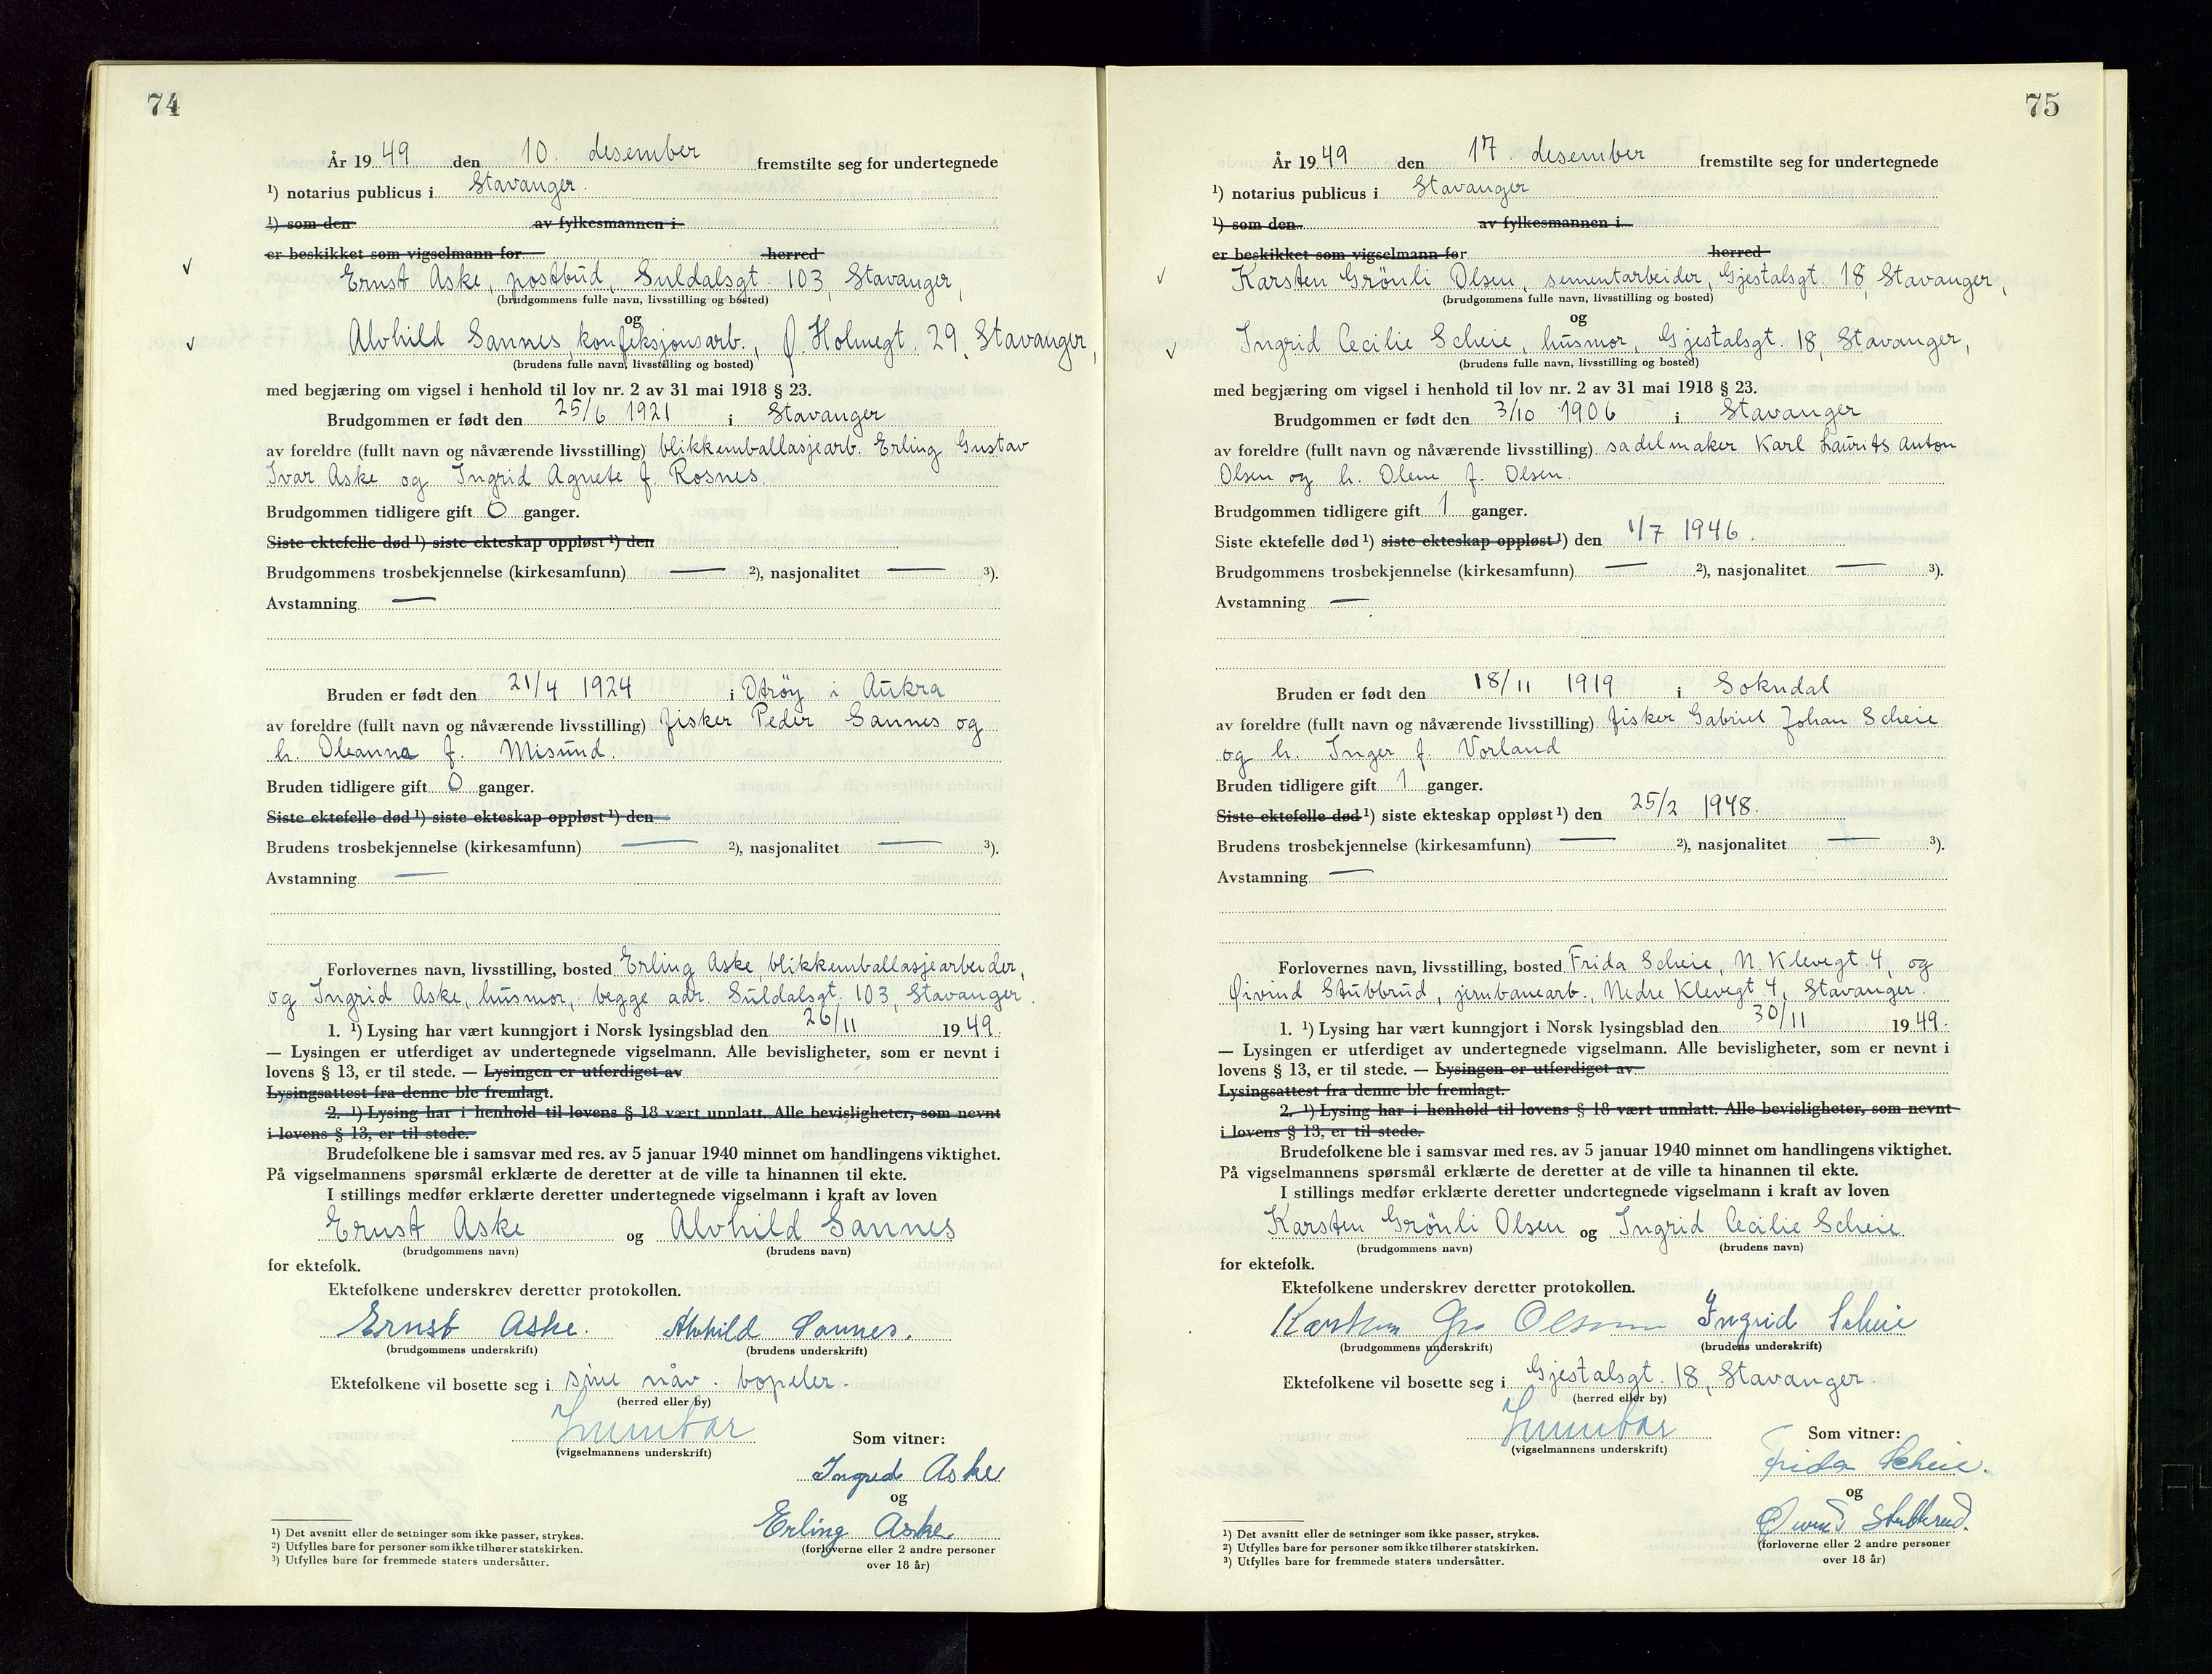 74
År 1949 den 10. desember fremstilte seg for undertegnede
¹) notarius publicus i Stavanger.
¹) som den av fylkesmannen i
er beskikket som vigselmann for herred
Ernst Aske, postbud, Suldalsgt. 103, Stavanger,
(brudgommens fulle navn, livsstilling og bosted)
og
Alvhild Sannes, konfeksjonsarb., Ø. Holmegt. 29, Stavanger,
(brudens fulle navn, livsstilling og bosted)
med begjæring om vigsel i henhold til lov nr. 2 av 31 mai 1918 § 23.
Brudgommen er født den 25/6 1921 i Stavanger
av foreldre (fullt navn og nåværende livsstilling) blikkemballasjearb. Erling Gustav
Ivar Aske og Ingrid Agnete f. Rosnes.
Brudgommen tidligere gift 0 ganger.
Siste ektefelle død ¹) siste ekteskap oppløst ¹) den
Brudgommens trosbekjennelse (kirkesamfunn) — ²), nasjonalitet — ³).
Avstamning —
Bruden er født den 21/4 1924 i Otrøy i Aukra
av foreldre (fullt navn og nåværende livsstilling) fisker Peder Sannes og
h. Oleanna f. Misund.
Bruden tidligere gift 0 ganger.
Siste ektefelle død ¹) siste ekteskap oppløst ¹) den
Brudens trosbekjennelse (kirkesamfunn) — ²), nasjonalitet — ³).
Avstamning —
Forlovernes navn, livsstilling, bosted Erling Aske, blikkemballasjearbeider,
og Ingrid Aske, husmor, begge adr. Suldalsgt. 103, Stavanger.
1. ¹) Lysing har vært kunngjort i Norsk lysingsblad den 26/11 1949.
— Lysingen er utferdiget av undertegnede vigselmann. Alle bevisligheter, som er nevnt i
lovens § 13, er til stede. — Lysingen er utferdiget av
Lysingsattest fra denne ble fremlagt.
2. ¹) Lysing har i henhold til lovens § 18 vært unnlatt. Alle bevisligheter, som nevnt
i lovens § 13, er til stede.
Brudefolkene ble i samsvar med res. av 5 januar 1940 minnet om handlingens viktighet.
På vigselmannens spørsmål erklærte de deretter at de ville ta hinannen til ekte.
I stillings medfør erklærte deretter undertegnede vigselmann i kraft av loven
Ernst Aske og Alvhild Sannes
(brudgommens navn) (brudens navn)
for ektefolk.
Ektefolkene underskrev deretter protokollen.
Ernst Aske. Alvhild Sannes.
(brudgommens underskrift) (brudens underskrift)
Ektefolkene vil bosette seg i sine nåv. bopeler.
(herred eller by)
(vigselmannens underskrift)
Som vitner:
Ingrid Aske
og
Erling Aske
(forloverne eller 2 andre personer
over 18 år)
¹) Det avsnitt eller de setninger som ikke passer, strykes.
²) Utfylles bare for personer som ikke tilhører statskirken.
³) Utfylles bare for fremmede staters undersåtter.
75
År 1949 den 17. desember fremstilte seg for undertegnede
¹) notarius publicus i Stavanger
¹) som den av fylkesmannen i
er beskikket som vigselmann for herred
Karsten Grönli Olsen, sementarbeider, Gjestalsgt. 18, Stavanger,
(brudgommens fulle navn, livsstilling og bosted)
og
Ingrid Cecilie Scheie, husmor, Gjestalsgt. 18, Stavanger,
(brudens fulle navn, livsstilling og bosted)
med begjæring om vigsel i henhold til lov nr. 2 av 31 mai 1918 § 23.
Brudgommen er født den 3/10 1906 i Stavanger
av foreldre (fullt navn og nåværende livsstilling) sadelmaker Karl Laurits Anton
Olsen og h. Olene f. Olsen.
Brudgommen tidligere gift 1 ganger.
Siste ektefelle død ¹) siste ekteskap oppløst ¹) den 1/7 1946.
Brudgommens trosbekjennelse (kirkesamfunn) — ²), nasjonalitet — ³).
Avstamning —
Bruden er født den 18/11 1919 i Sokndal
av foreldre (fullt navn og nåværende livsstilling) fisker Gabriel Johan Scheie
og h. Inger f. Vorland
Bruden tidligere gift 1 ganger.
Siste ektefelle død ¹) siste ekteskap oppløst ¹) den 25/2 1948.
Brudens trosbekjennelse (kirkesamfunn) — ²), nasjonalitet — ³).
Avstamning —
Forlovernes navn, livsstilling, bosted Frida Scheie, N. Klevegt 4, og
Øivind Stubbrud, jernbanearb., Nedre Klevegt 4, Stavanger.
1. ¹) Lysing har vært kunngjort i Norsk lysingsblad den 30/11 1949.
— Lysingen er utferdiget av undertegnede vigselmann. Alle bevisligheter, som er nevnt i
lovens § 13, er til stede. — Lysingen er utferdiget av
Lysingsattest fra denne ble fremlagt.
2. ¹) Lysing har i henhold til lovens § 18 vært unnlatt. Alle bevisligheter, som nevnt
i lovens § 13, er til stede.
Brudefolkene ble i samsvar med res. av 5 januar 1940 minnet om handlingens viktighet.
På vigselmannens spørsmål erklærte de deretter at de ville ta hinannen til ekte.
I stillings medfør erklærte deretter undertegnede vigselmann i kraft av loven
Karsten Grönli Olsen og Ingrid Cecilie Scheie
(brudgommens navn) (brudens navn)
for ektefolk.
Ektefolkene underskrev deretter protokollen.
Karsten Gr Olsen Ingrid Scheie
(brudgommens underskrift) (brudens underskrift)
Ektefolkene vil bosette seg i Gjestalsgt. 18, Stavanger.
(herred eller by)
(vigselmannens underskrift)
Som vitner:
Frida Scheie.
og
Øivind Stubbrud.
(forloverne eller 2 andre personer
over 18 år)
¹) Det avsnitt eller de setninger som ikke passer, strykes.
²) Utfylles bare for personer som ikke tilhører statskirken.
³) Utfylles bare for fremmede staters undersåtter.